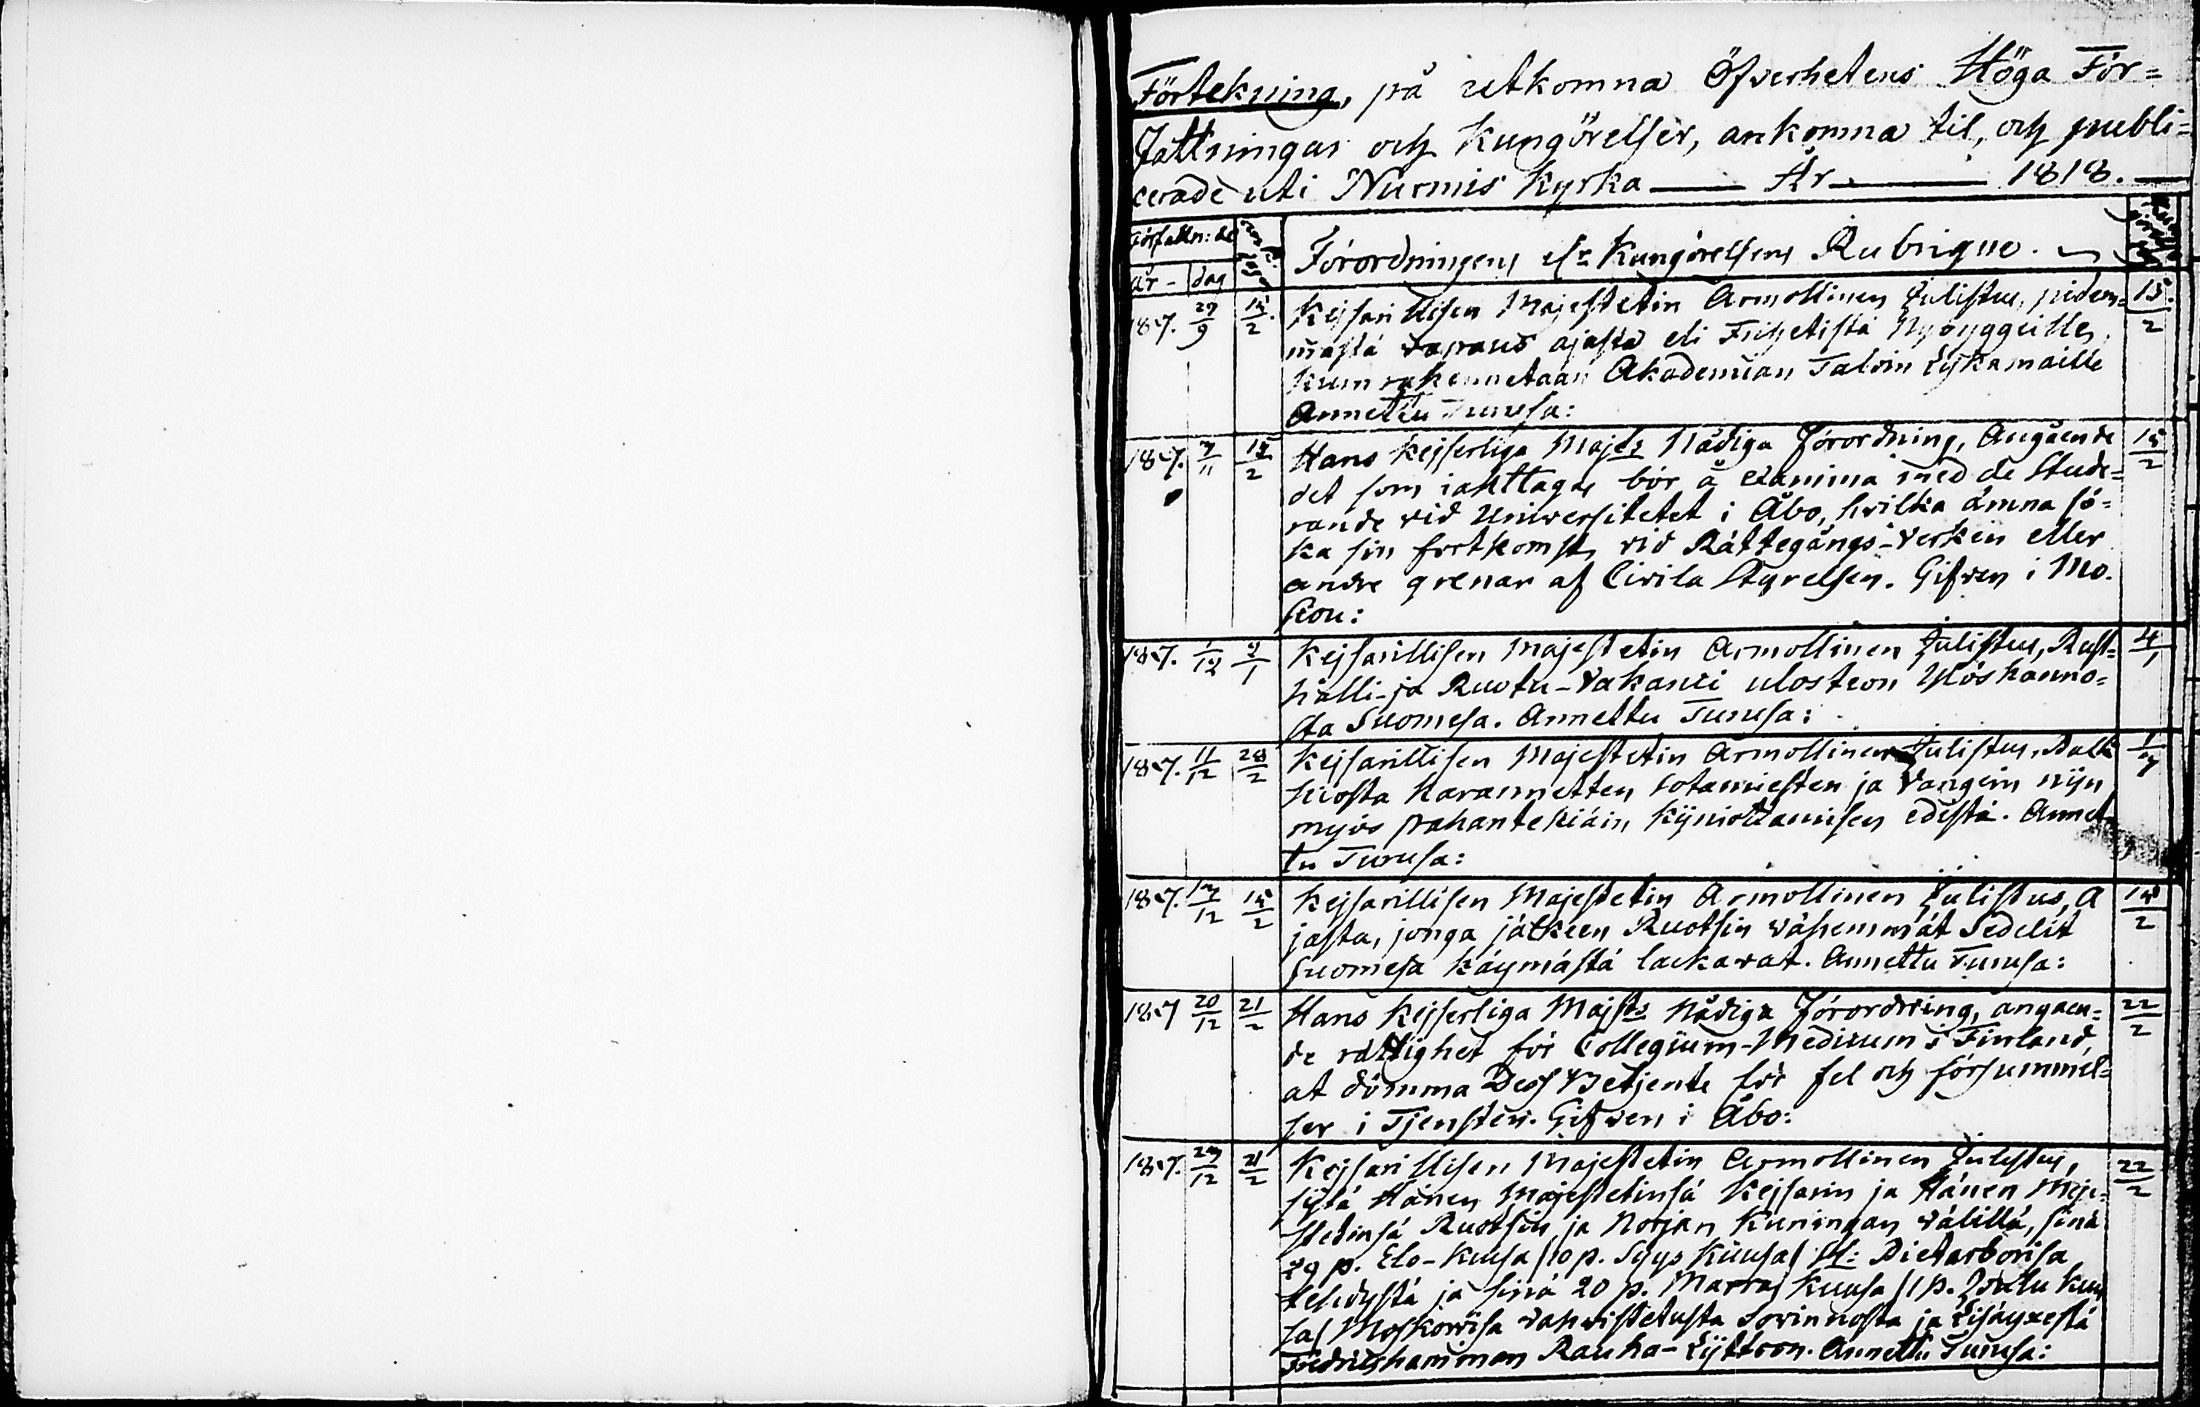 Förtekning, på utkomna Öfverhetens Höga För=
fattningar och Kungörelser, ankomna til, och publi=
cerade uti Nurmis Kyrka — År — 1818. —
Författn: de
år - dag
Förordningens elr Kungörelsens Rubrique.
1817. 29/9 15/2. Kejsarillisen Majestetin Armollinen Julistus, pidem= 15./2
mästä vapaus ajasta eli Frihetistä Nybyggeille,
kuin rakennetaan Akademian Talvin Lyskamaille
Annettu Turusa:
1817. 7/11 15/2 Hans Kejserliga Majts Nådiga Förordning, Angående 15/2
det som iakttagas bör å examina med de Stude=
rande vid Universitetet i Åbo, hvilka ämna sö=
ka sin fortkomst, vid Rättegångs-Verken eller
andre grenar af Civila Styrelsen. Gifven i Mo.
skou:
1817. 1/12 4/1 Kejsarillisen Majestetin Armollinen Julistus, Rust= 4/1
hålli- ja Ruotu-Vakanci ulosteon Ylöskanno=
sta Suomesa. Annettu Turusa:
1817. 11/12 28/2 Kejsarillisen Majestetin Armollinen Julistus, Palk
kiosta Karannetten Sotamiesten ja Vangein nijn
myös pahantekiäin, kijniottamisen edestä. Annet
tu Turusa:
1817. 17/12 15/2 Kejsarillisen Majestetin Armollinen Julistus, A 15/2
jasta, jonga jälkeen Ruotsin vähemmät Sedelit
Suomesa käymästä lackavat. Annettu Turusa:
1817 20/12 21/2 Hans Kejserliga Majsts Nådiga Förordning, angåen= 22/2
de rättighet för Collegium-Medicum i Finland,
at dömma Dess Betjente för fel och försummel=
ser i Tjensten. Gifven i Åbo:
1817. 29/12 21/2 Kejsarillisen Majestetin Armollinen Julistus, 22/2
sijtä Hänen Majestetinsä Kejsarin ja Hänen Maje=
stetinsä Ruotsin ja Norjan Kuningan välillä, sinä
29 p. Elo-Kuusa /10 p. Syys Kuusa/ St: Pietarborisa
tehdystä ja sinä 20 p. Marras Kuusa /1 p. Joulu kuu
sa/ Moskovisa vahvistetusta Sovinnosta ja Lisäyxestä
Fredrikshamman Rauha-Lijttoon. Annettu Turusa: